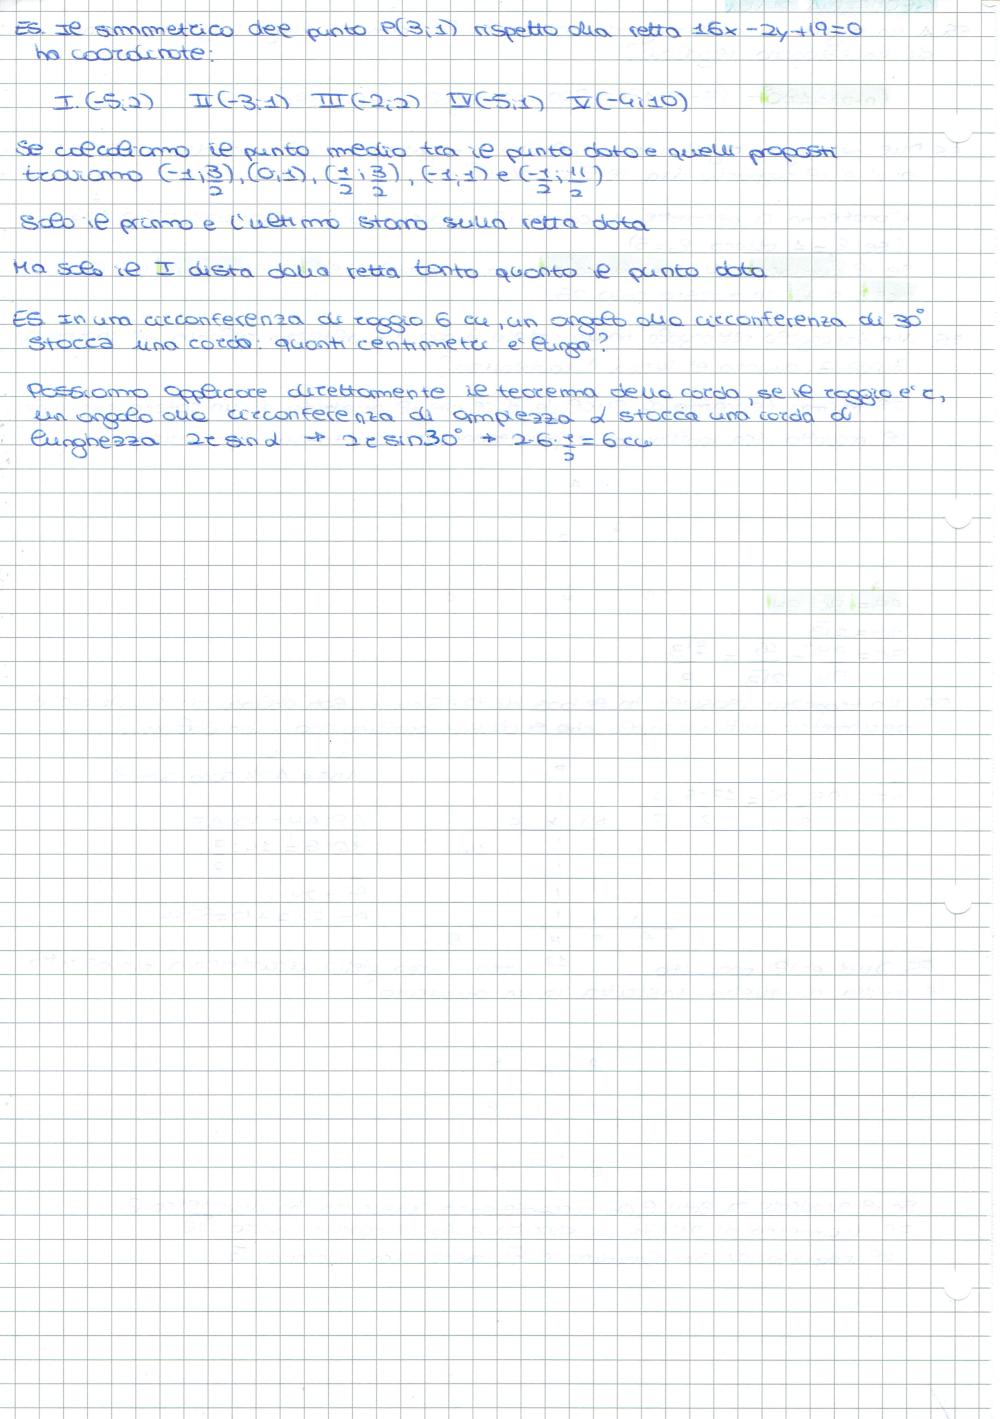 ES. Il simmetrico del punto P(3;1) rispetto alla retta 16x-2y+19=0
ha coordinate:
I.(-5;2) II(-3;1) III(-2;2) IV(-5;1) V(-4;10)
Se calcoliamo il punto medio tra il punto dato e quelli proposti
troviamo (-1;3/2),(0,1),(1/2;3/2),(-1,1) e (-1/2;11/2)
Solo il primo e l'ultimo stano sulla retta data
Ma solo il I dista dalla retta tanto quanto il punto dato
ES. In una circonferenza di raggio 6 cm, un angolo alla circonferenza di 30°
stacca una corda: quanti centimetri e' lunga?
Possiamo applicare direttamente il teorema della corda, se il raggio e' r,
un angolo alla circonferenza di ampiezza α stacca una corda di
lunghezza 2r sinα → 2r sin30° → 2·6·1/2=6 cm